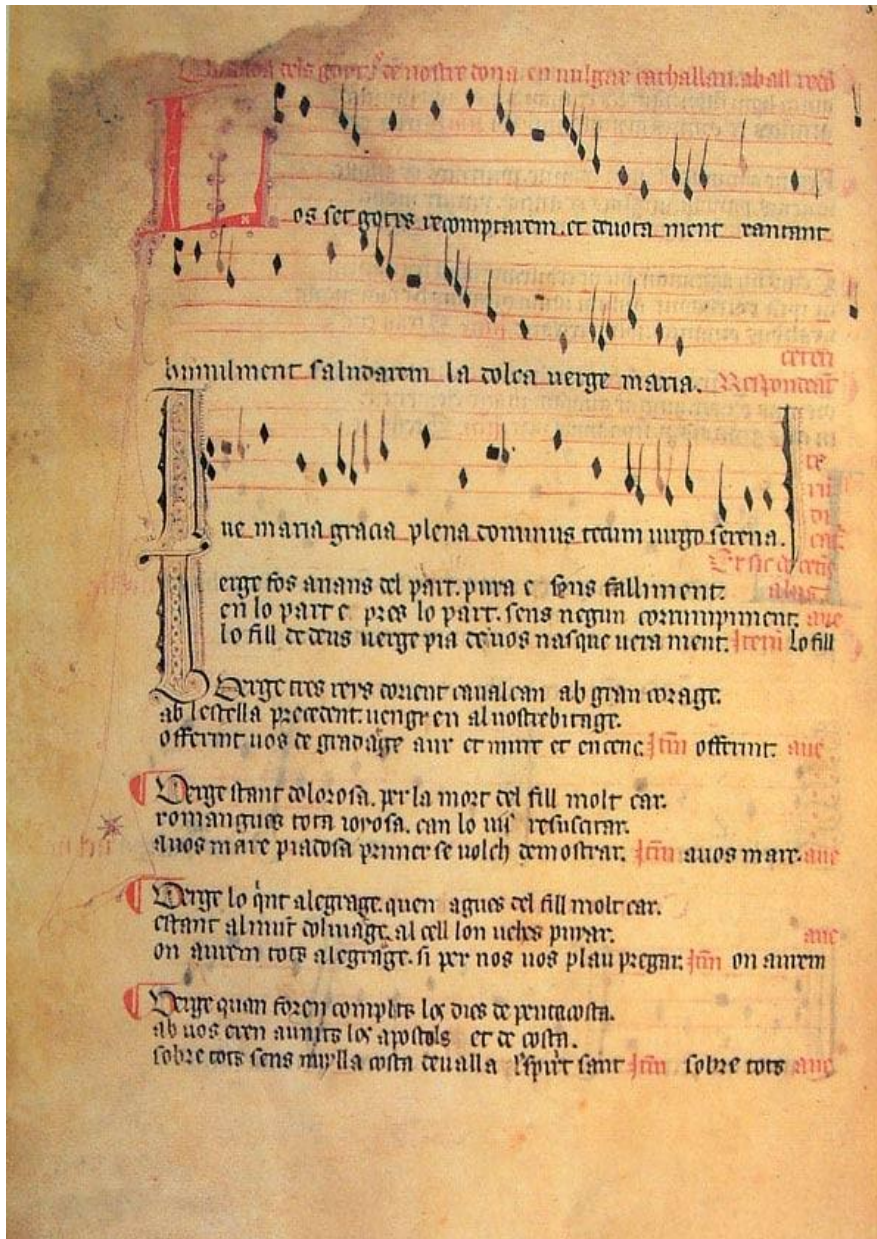 Ballada dels goytx de nostre dona en vulgar cathallan. a ball redo
Los set gotxs recomptarem. et deuota ment xantant
humilment saludarem la dolça uerge maria. Respondent
ceteri
Aue maria gracia plena dominus tecum uirgo serena.
Verge fos anans del part. pura e sens falliment.
en lo part e pres lo part. sens negun corrumpiment. aue
lo fill de deus uerge pia de uos nasque uera ment. Item lo fill
Verge tres reys dorient caualcan ab gran corage.
ab lestella precedent. uengren al uostre bitage.
offerint uos de gradage aur et mirre et encenç. Itm offerint. aue
Verge stant dolorosa. per la mort del fill molt car.
romangues tota ioyosa. can lo uis resuscitar.
auos mare piadosa primer se uolch demostrar. Itm auos mare. aue
Verge lo qint alegrage. quen agues del fill molt car.
estant al munt doliuage. al cell lon ueches puyar. aue
on aurem tots alegrage. si per nos uos plau pregar. Itm on aurem
Verge quan foren complits los dies de pentacosta.
ab uos eren aunits los apostols et de costa.
sobre tots sens nuylla costa deualla lespirit sant Itm sobre tots aue